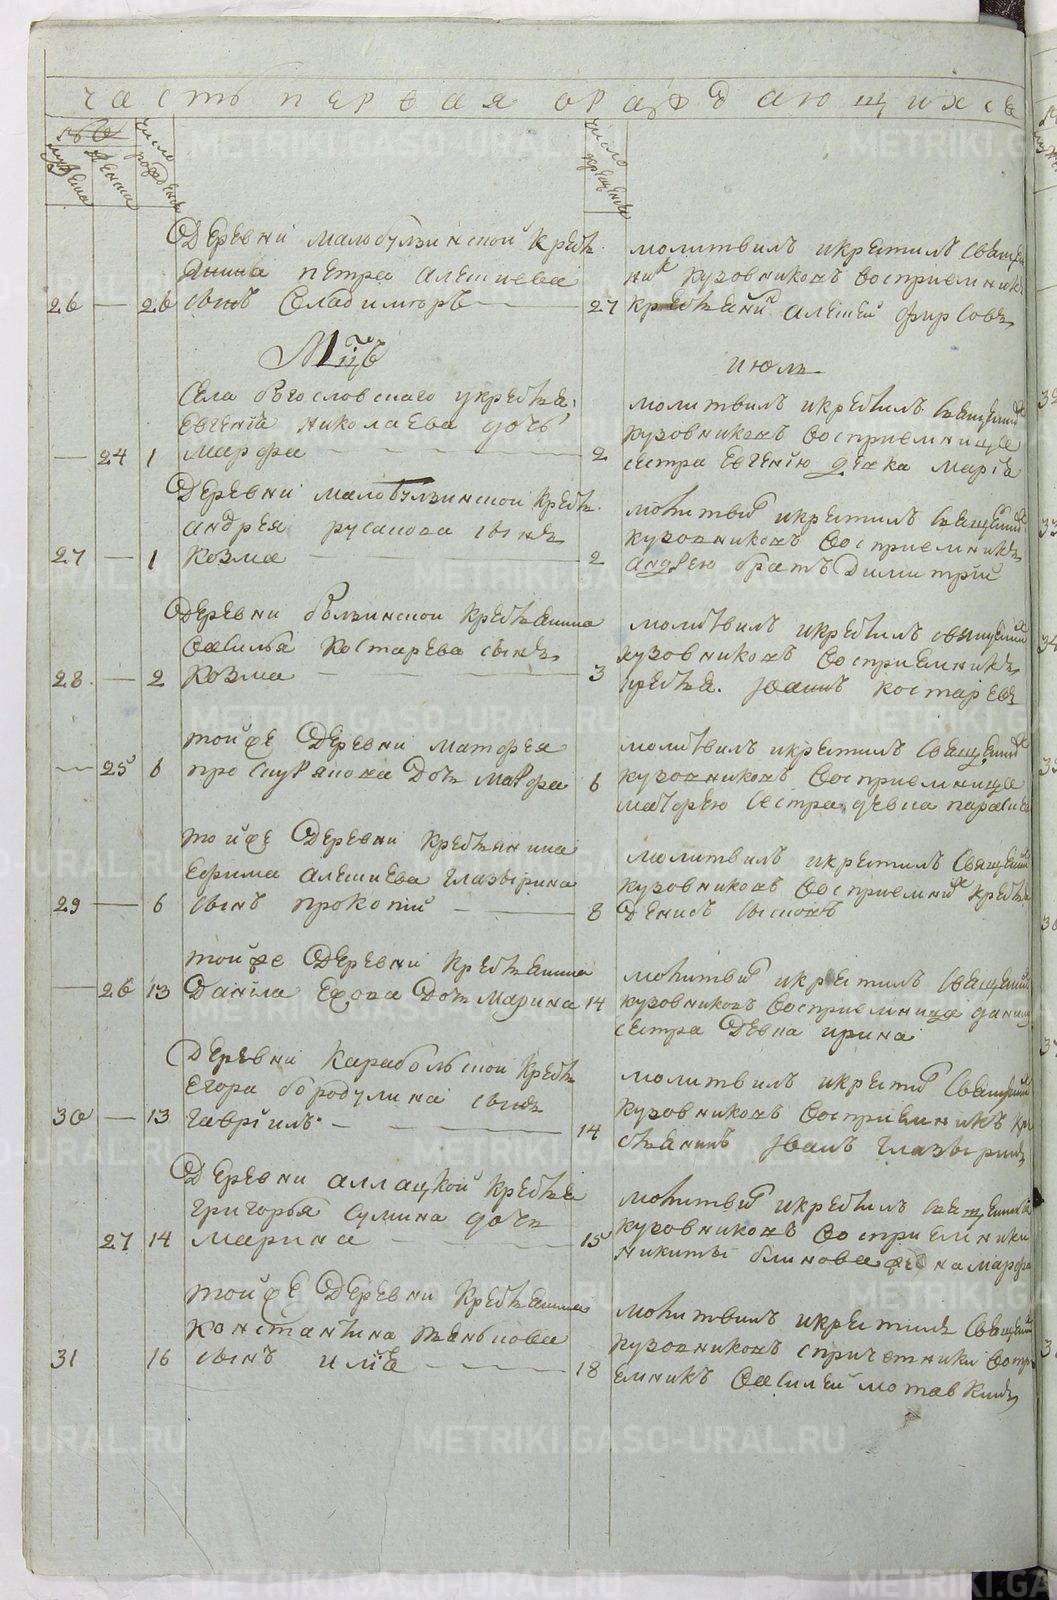 часть первая ораждающихся
мужеска
женска
число рождения
число крещения
деревни малобулзинской крестья
нина петра алешиева
26 — 26 сынъ владимиръ
27
молитвилъ и крестилъ священ
ник кузовниковъ восприемникъ
крестьянинъ алешей фирсовъ
Мцъ июль
села богословскаго у крестья.
евгенiя николаева дочь
— 24 1 марфа
2
молитвилъ и крестилъ священник
кузовниковъ восприемница
сестра евгению девка марiя
деревни малобулзинской крестья.
андрея русанова сынъ
27 — 1 козма
2
молитвил и крестилъ священник
кузовниковъ восприемникъ
андрею братъ димитрий
деревни булзинской крестьянина
василья костарева сынъ
28. — 2 козма
3
молитвилъ и крестилъ священник
кузовниковъ восприемникъ
крестья. иванъ костаревъ
той же деревни матфея
— 25 6 проскурякова дочь марфа
6
молитвилъ и крестилъ священник
кузовниковъ восприемница
матфею сестра девка
той же деревни крестьянина
ефима алешиева глазырина
29 — 6 сынъ прокопий
8
молитвилъ и крестилъ священник
кузовниковъ восприемник крестья
денисъ
той же деревни крестьянина
— 26 13 данiла ехова дочь марина
14
молитвил и крестилъ священник
кузовниковъ восприемница данилу
сестра девка ирина
деревни карабольской крестья
егора бородулина сынъ
30 — 13 гаврiилъ
14
молитвилъ и крестил священник
кузовниковъ восприемникъ кре
стьянинъ иванъ глазыринъ
деревни аллацкой крестья
григорья сумина дочь
27 14 марина
15
молитвил и крестилъ священник
кузовниковъ восприемники
никиты блинова жена марфа
той же деревни крестьянина
константина сына
31 16 сынъ илiя
18
молитвилъ и крестилъ священник
кузовниковъ с причетники воспри
емникъ василей мотавкинъ
METRIKI.GASO-URAL.RU